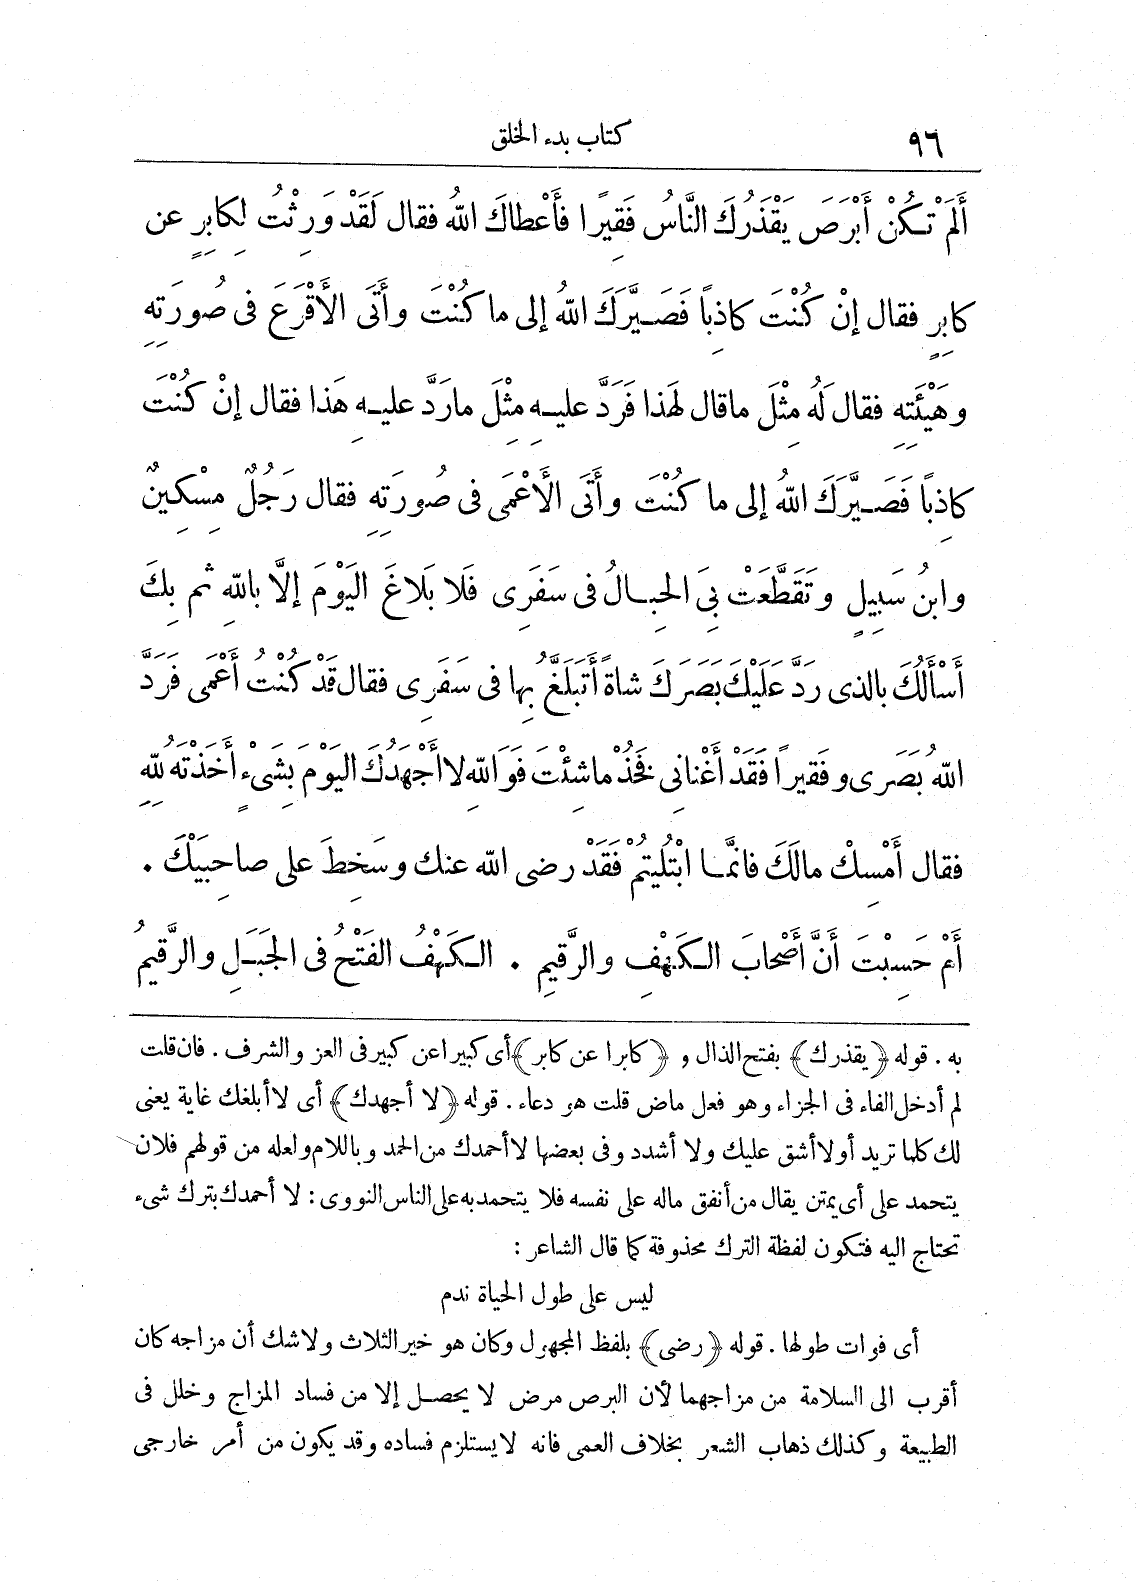 ٩٦
كتاب بدء الخلق
أَلَمْ تَكُنْ أَبْرَصَ يَقْذَرُكَ النَّاسُ فَقِيرًا فَأَعْطاكَ اللهُ فقال لَقَدْ وَرِثْتُ لِكابِرٍ عن
كابِرٍ فقال إنْ كُنْتَ كاذِباً فَصَيَّرَكَ اللهُ إلى ما كُنْتَ وأَتَى الأَقْرَعَ فى صُورَتِهِ
وهَيْئَتِهِ فقال لَهُ مِثْلَ ماقال لِهَذا فَرَدَّ عليهِ مِثْلَ مارَدَّ عليهِ هَذا فقال إنْ كُنْتَ
كاذِباً فَصَيَّرَكَ اللهُ إلى ما كُنْتَ وأَتَى الأَعْمَى فى صُورَتِهِ فقال رَجُلٌ مِسْكِينٌ
وابنُ سَبِيلٍ وتَقَطَّعَتْ بِىَ الحِبالُ فى سَفَرِى فَلا بَلاغَ اليَوْمَ إلَّا باللهِ ثم بِكَ
أَسْأَلُكَ بالذى رَدَّ عَلَيْكَ بَصَرَكَ شاةً أَتَبَلَّغُ بِها فى سَفَرِى فقال قَدْ كُنْتُ أَعْمَى فَرَدَّ
اللهُ بَصَرِى وفَقِيراً فَقَدْ أَغْنانِى فَخُذْ ماشِئْتَ فوَاللهِ لا أَجْهَدُكَ اليَوْمَ بِشَىْءٍ أَخَذْتَهُ لِلهِ
فقال أَمْسِكْ مالَكَ فانَّما ابْتُلِيتُمْ فَقَدْ رضى الله عنك وسَخِطَ على صاحِبَيْكَ .
أَمْ حَسِبْتَ أَنَّ أَصْحابَ الكَهْفِ والرَّقِيمِ . الكَهْفُ الفَتْحُ فى الجَبَلِ والرَّقِيمُ
به . قوله ﴿يقذرك﴾ بفتح الذال و ﴿كابرا عن كابر﴾ أى كبيرا عن كبير فى العز والشرف . فان قلت
لم أدخل الفاء فى الجزاء وهو فعل ماض قلت هو دعاء . قوله ﴿لا أجهدك﴾ أى لا أبلغك غاية يعنى
لك كلما تريد أولا أشق عليك ولا أشدد وفى بعضها لا أحمدك من الحمد وباللام ولعله من قولهم فلان
يتحمد على أى يمتن يقال من أنفق ماله على نفسه فلا يتحمد به على الناس النووى : لا أحمدك بترك شىء
تحتاج اليه فتكون لفظة الترك محذوفة كما قال الشاعر :
ليس على طول الحياة ندم
أى فوات طولها . قوله ﴿رضى﴾ بلفظ المجهول وكان هو خير الثلاث ولاشك أن مزاجه كان
أقرب الى السلامة من مزاجهما لأن البرص مرض لا يحصل إلا من فساد المزاج وخلل فى
الطبيعة وكذلك ذهاب الشعر بخلاف العمى فانه لا يستلزم فساده وقد يكون من أمر خارجى